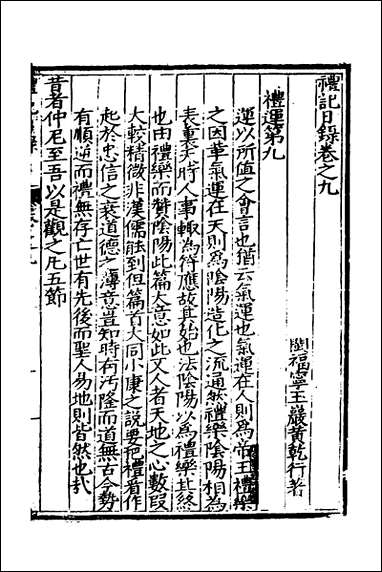 禮記日錄卷之九
閩福寧玉巖黃乾行著
禮運第九
運以所值之會言也猶云氣運也氣運在人則為帝王禮樂
之因革氣運在天則為陰陽造化之流通然禮樂陰陽相為
表裏天時人事輒為符應故其始也法陰陽以為禮樂其終
也由禮樂而贊陰陽此篇大意如此又人者天地之心數段
大較精微非漢儒能到但篇首大同小康之說要把禮看作
起於忠信之衰道德之薄意豈知時有汚隆而道無古今勢
有順逆而禮無存亡世有先後而聖人易地則皆然也哉
昔者仲尼至吾以是觀之凡五節